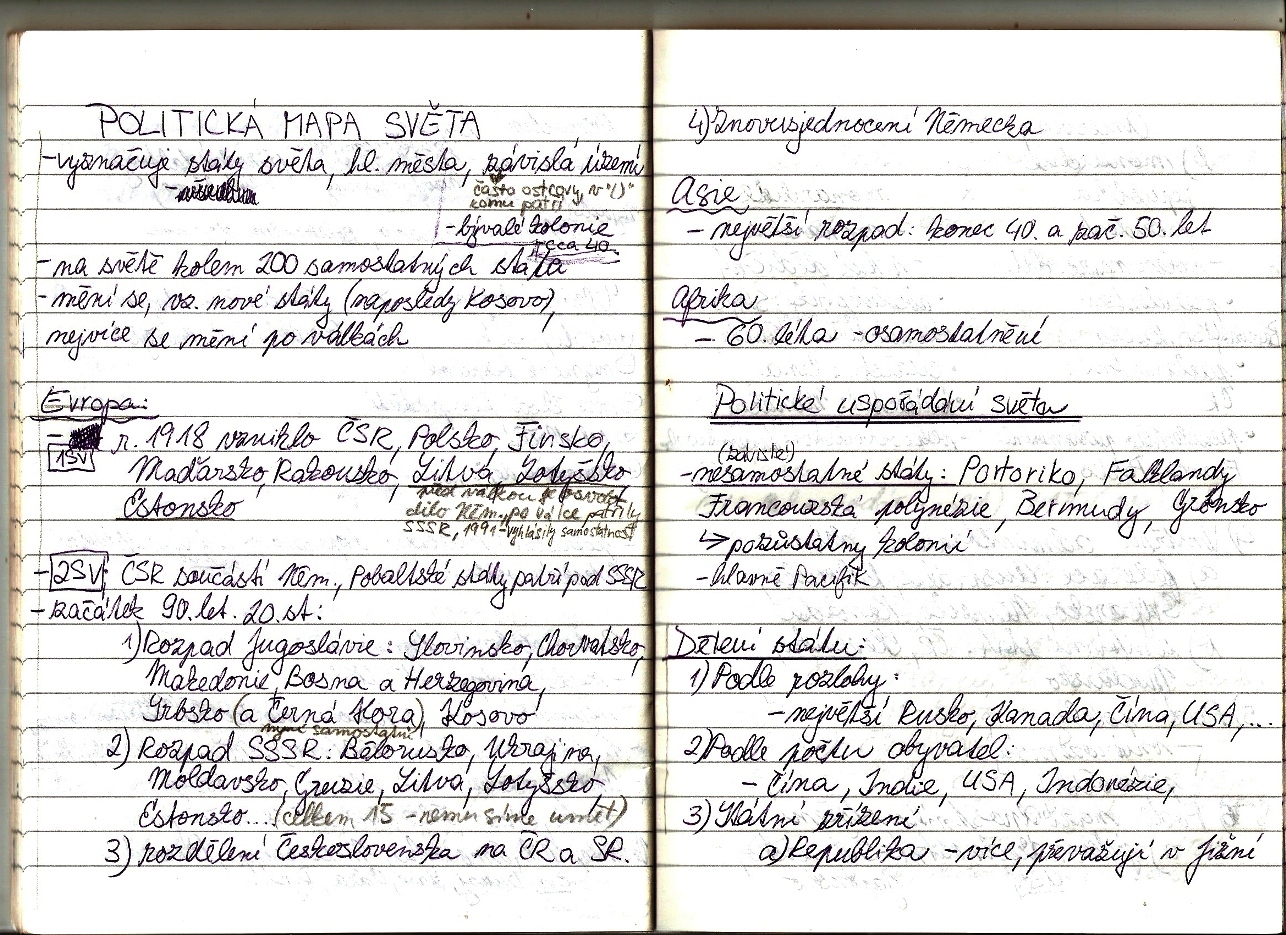 POLITICKÁ MAPA SVĚTA
-vyznačuje státy světa, hl. města, závislá území
často ostrovy, v "()"
komu patří
-bývalé kolonie
cca 40.
-na světě kolem 200 samostatných států
-mění se, vz. nové státy (naposledy Kosovo),
nejvíce se mění po válkách
Evropa:
- r. 1918 vzniklo ČSR, Polsko, Finsko,
1SV
Maďarsko, Rakousko, Litva, Lotyšsko
Estonsko
před válkou je osvobo
dilo Něm., po válce patřily
SSSR, 1991-vyhlásily samostatnost
-2SV: ČSR součástí Něm., Pobaltské státy patří pod SSSR
-začátek 90. let. 20. st:
1) Rozpad Jugoslávie: Slovinsko, Chorvatsko,
Makedonie, Bosna a Herzegovina,
Srbsko (a Černá Hora), Kosovo
nyní samostatní
2) Rozpad SSSR: Bělorusko, Ukrajina,
Moldavsko, Gruzie, Litva, Lotyšsko
Estonsko... (celkem 15 -nemusíme umět)
3) rozdělení Československa na ČR a SR.
4) Znovusjednocení Německa
Asie
- největší rozpad: konec 40. a zač. 50. let
Afrika
- 60. léta -osamostatnění
Politické uspořádání světa
(závislé)
-nesamostatné státy: Portoriko, Falklandy
Francouzská polynézie, Bermudy, Grónsko
↳ pozůstatky kolonií
-hlavně Pacifik
Dělení států:
1) Podle rozlohy:
-největší Rusko, Kanada, Čína, USA,...
2) Podle počtu obyvatel:
- Čína, Indie, USA, Indonézie,
3) Státní zřízení
a) Republika -více, převažují v jižní